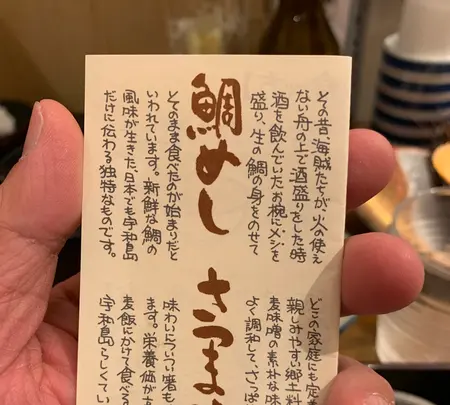 鯛めし
その昔、海賊たちが、火の使え
ない舟の上で酒盛りをした時
酒を飲んでいたお椀にメシを
盛り、生の鯛の身をのせて
そのまま食べたのが始まりだと
いわれています。新鮮な鯛の
風味が生きた、日本でも宇和島
だけに伝わる独特なものです。
さつま
どこの家庭にも定
親しみやすい郷土料
麦味噌の素朴な味
よく調和して、さっぱ
味わいについつい箸も
ます。栄養価が
麦飯にかけて食べる
宇和島らしくてい